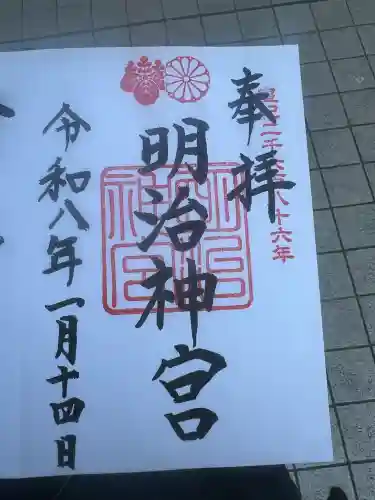 皇紀二千六百八十六年
奉拝
明治神宮
明治
神宮
令和八年一月十四日